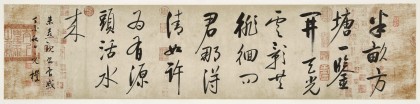 半畝方
塘一鑒
開天光
雲影共
徘徊問
君那得
清如許
為有源
頭活水
來
朱熹觀書有感